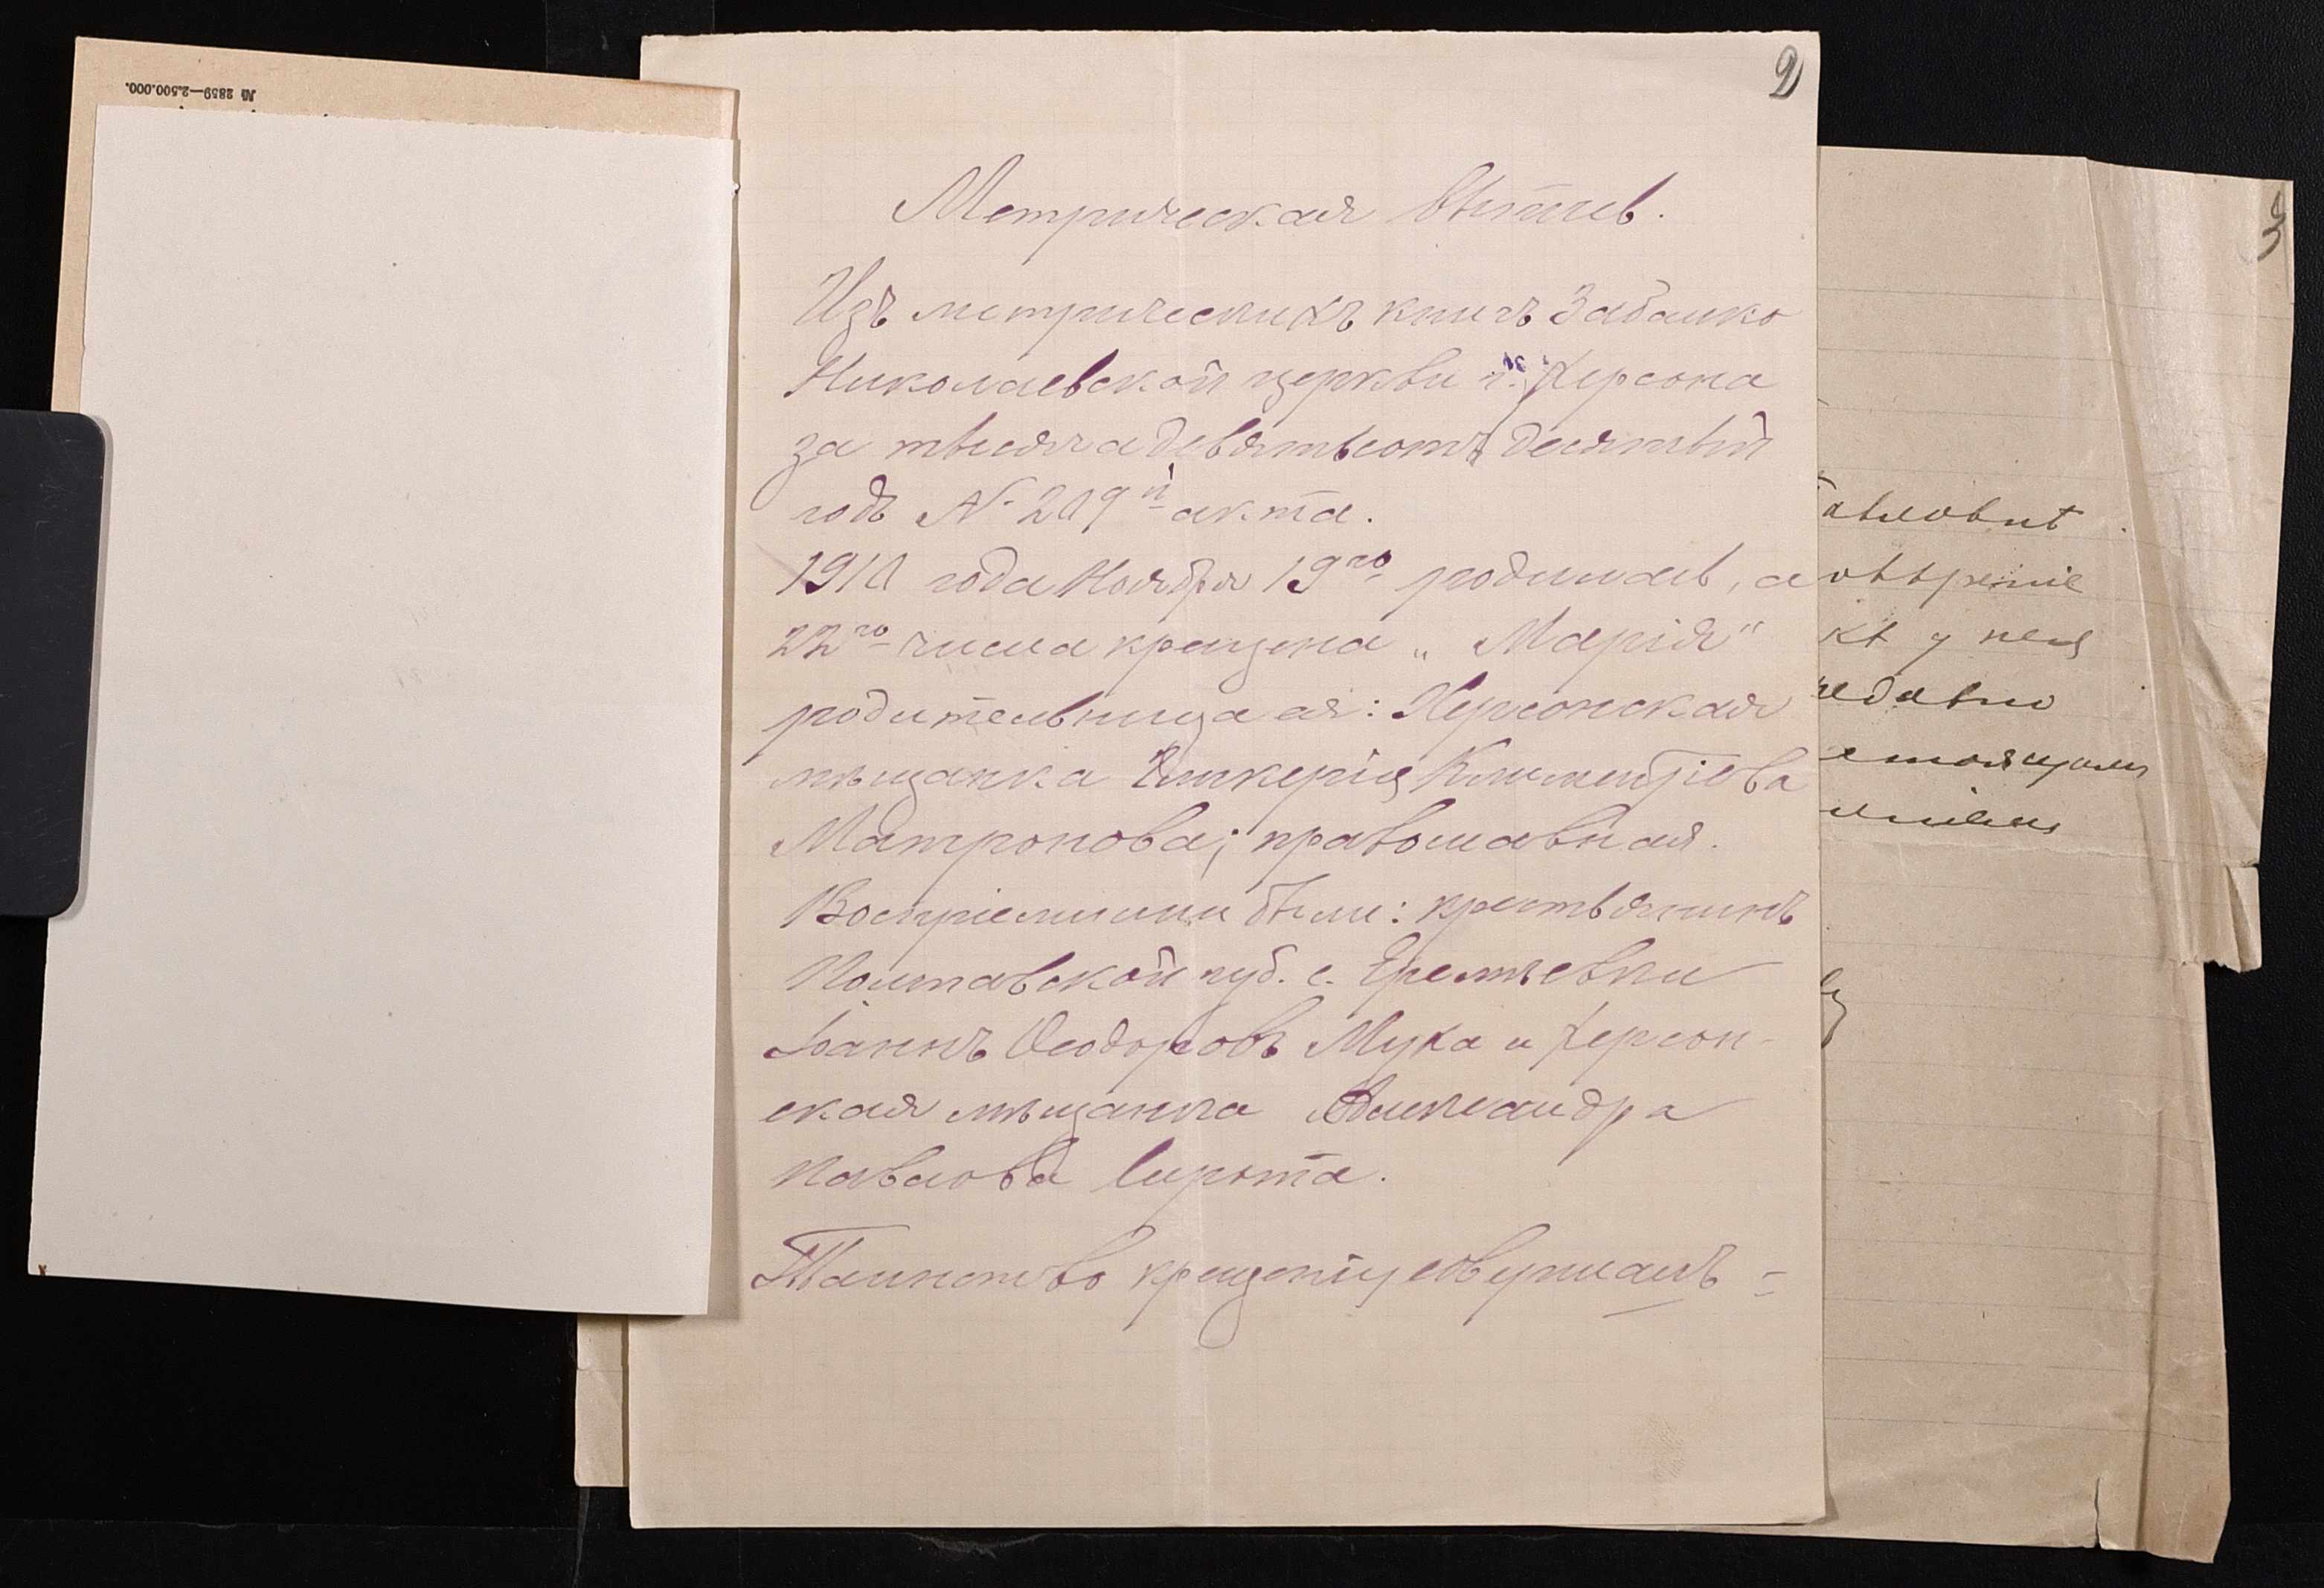 № 2859—2.500.000.
2
Метрическая выпись.
Изъ метрическихъ книгъ Забалко
Николаевской церкви г. Херсона
за тысяча девятьсотъ десятый
годъ № 209й акта.
1910 года Ноября 19го родилась, а
22го числа крещена „Марія"
родительница ея: Херсонская
мѣщанка Гликерія Климентіева
Матронова; православная.
Воспріемники были: крестьянинъ
Полтавской губ. с. Еремѣевки
Іоаннъ Ѳеодоровъ Мука и Херсон-
ская мѣщанка Александра
Павлова Сирота.
Таинство крещенія совершалъ =
3